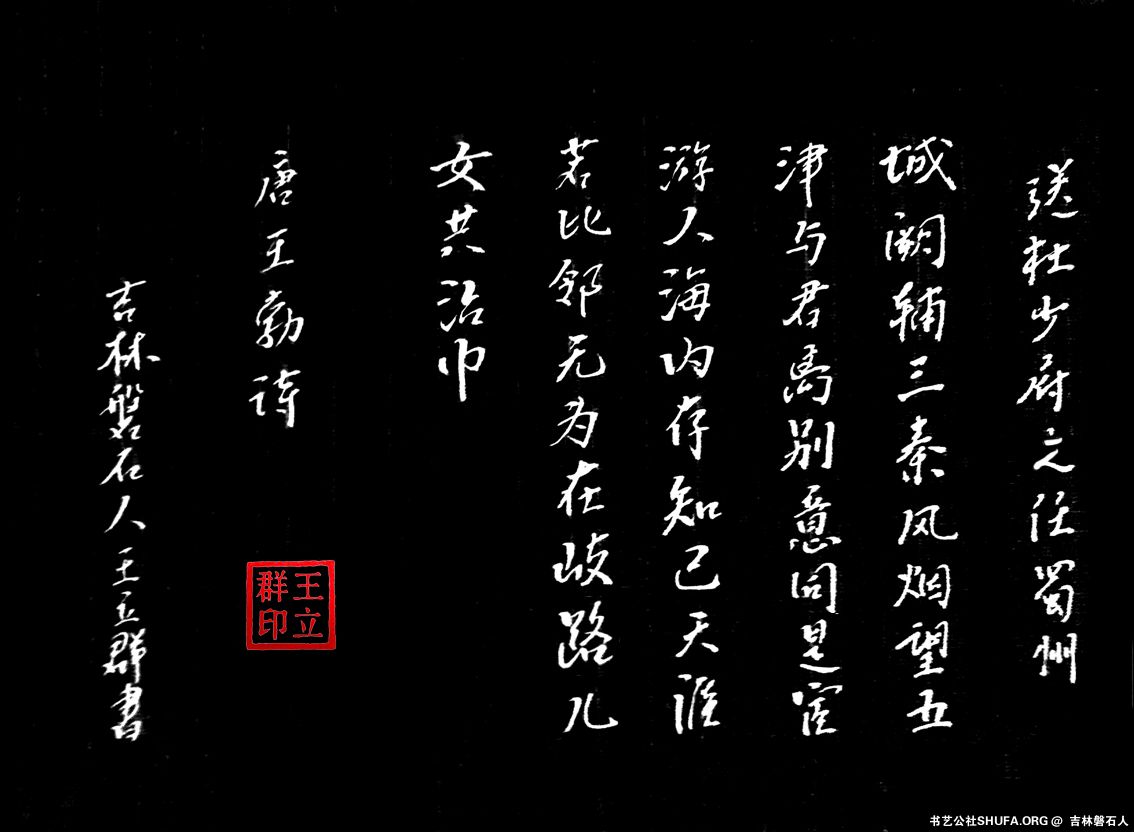 送杜少府之任蜀州
城阙辅三秦风烟望五
津与君离别意同是宦
游人海内存知己天涯
若比邻无为在歧路儿
女共沾巾
唐王勃诗
吉林磐石人王立群書
王立
群印
书艺公社SHUFA.ORG @ 吉林磐石人